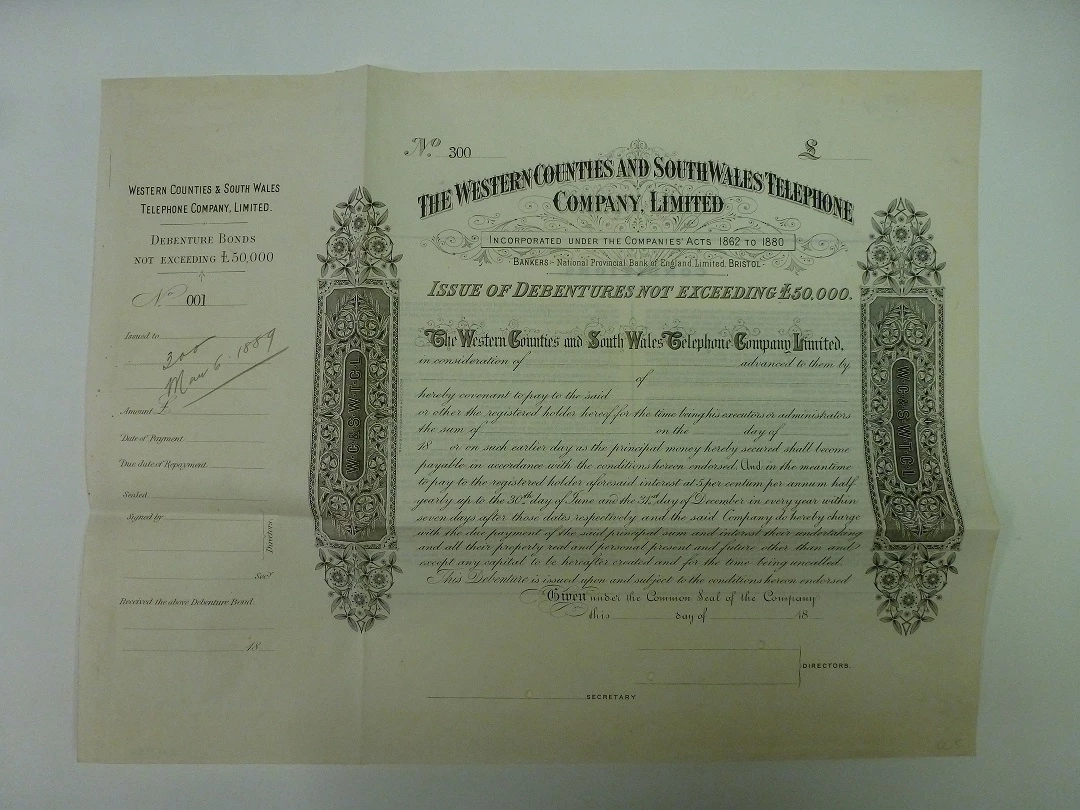 WESTERN COUNTIES & SOUTH WALES
TELEPHONE COMPANY, LIMITED.
DEBENTURE BONDS
NOT EXCEEDING £50,000
No 001
Issued to
300
Mar 6. 1889
Amount £
Date of Payment
Due date of Repayment
Sealed
Signed by
Directors
Secy
Received the above Debenture Bond.
18
No 300
£
THE WESTERN COUNTIES AND SOUTH WALES TELEPHONE
COMPANY, LIMITED
INCORPORATED UNDER THE COMPANIES' ACTS 1862 TO 1880
BANKERS:- National Provincial Bank of England Limited, BRISTOL.
ISSUE OF DEBENTURES NOT EXCEEDING £50,000.
The Western Counties and South Wales Telephone Company Limited,
in consideration of advanced to them by
of
hereby covenant to pay to the said
or other the registered holder hereof for the time being his executors or administrators
the sum of on the day of
18 or on such earlier day as the principal money hereby secured shall become
payable in accordance with the conditions hereon endorsed. And in the meantime
to pay to the registered holder aforesaid interest at 5 per centum per annum half
yearly up to the 30th day of June and the 31st day of December in every year within
seven days after those dates respectively and the said Company do hereby charge
with the due payment of the said principal sum and interest their undertaking
and all their property real and personal present and future other than and
except any capital to be hereafter created and for the time being uncalled.
This Debenture is issued upon and subject to the conditions hereon endorsed
Given under the Common Seal of the Company
this day of 18
DIRECTORS.
SECRETARY
W.C. & S.W.T.C.L
W.C. & S.W.T.C.L